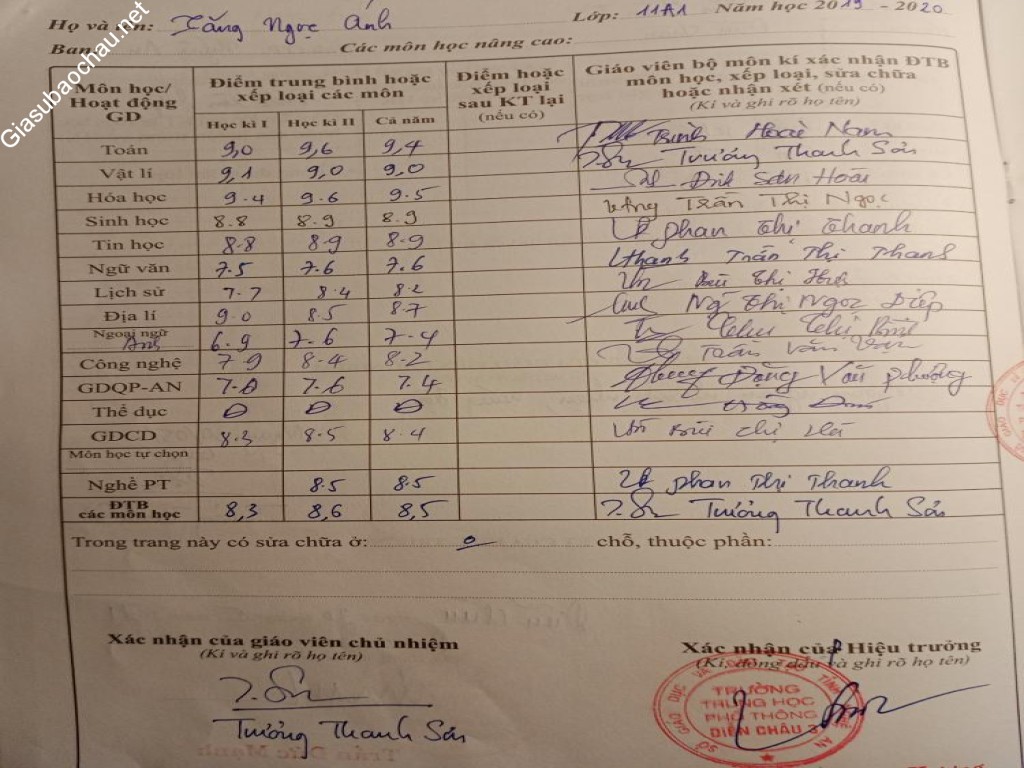 Giasubaochau.net
Họ và tên: Tăng Ngọc Ánh Lớp: 11A1 Năm học 2019 - 2020
Ban: Các môn học nâng cao:
Môn học/ Hoạt động GD Điểm trung bình hoặc xếp loại các môn Điểm hoặc xếp loại sau KT lại (nếu có) Giáo viên bộ môn kí xác nhận ĐTB môn học, xếp loại, sửa chữa hoặc nhận xét (nếu có) (Kí và ghi rõ họ tên)
Học kì I Học kì II Cả năm
Toán 9,0 9,6 9,4 Trịnh Hoài Nam
Vật lí 9,1 9,0 9,0 Trương Thanh Sản
Hóa học 9.4 9.6 9.5 Đinh Sơn Hoài
Sinh học 8.8 8.9 8.9 Trần Thị Ngọc
Tin học 8.8 8.9 8.9 Phan Thị Thanh
Ngữ văn 7.5 7.6 7.6 Trần Thị Thanh
Lịch sử 7.7 8.4 8.2 Bùi Thị
Địa lí 9.0 8.5 8.7 Ngô Thị Ngọc Diệp
Ngoại ngữ Anh 6.9 7.6 7.4 Chu Thị
Công nghệ 7.9 8.4 8.2 Trần Văn
GDQP-AN 7.0 7.6 7.4 Đặng Văn Phượng
Thể dục Đ Đ Đ
GDCD 8.3 8.5 8.4 Bùi Thị
Môn học tự chọn
Nghề PT 8.5 8.5 Phan Thị Thanh
ĐTB các môn học 8,3 8,6 8,5 Trương Thanh Sản
Trong trang này có sửa chữa ở: 0 chỗ, thuộc phần:
Xác nhận của giáo viên chủ nhiệm Xác nhận của Hiệu trưởng
(Kí và ghi rõ họ tên) (Kí, đóng dấu và ghi rõ họ tên)
TRƯỜNG
TRUNG HỌC
PHỔ THÔNG
DIỄN CHÂU 3
Trương Thanh Sản